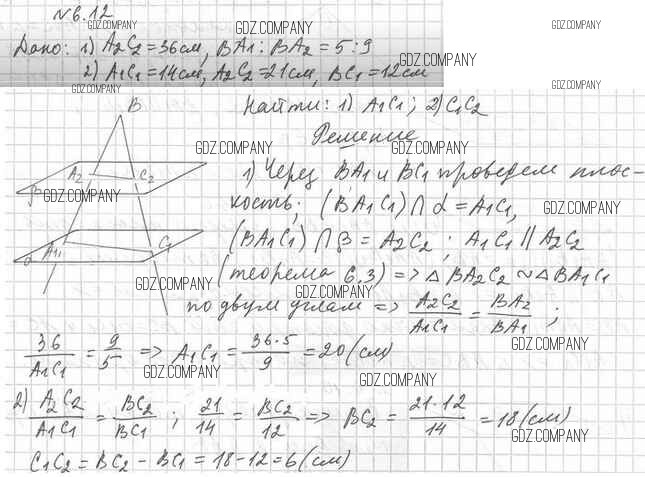 № 6.12
GDZ.COMPANY GDZ.COMPANY GDZ.COMPANY
Дано: 1) A2C2 = 36 см, BA1 : BA2 = 5 : 9
GDZ.COMPANY
2) A1C1 = 14 см, A2C2 = 21 см, BC1 = 12 см
GDZ.COMPANY GDZ.COMPANY
Найти: 1) A1C1; 2) C1C2
B
Решение
GDZ.COMPANY GDZ.COMPANY
1) Через BA1 и BC1 проведем плос-
A2 C2
β
GDZ.COMPANY
кость; (BA1C1) ∩ α = A1C1,
GDZ.COMPANY
(BA1C1) ∩ β = A2C2 ; A1C1 || A2C2
C1
α A1
GDZ.COMPANY
(теорема 6.3) => △ BA2C2 ~ △ BA1C1
GDZ.COMPANY GDZ.COMPANY
по двум углам => A2C2/A1C1 = BA2/BA1 ;
GDZ.COMPANY
36/A1C1 = 9/5 => A1C1 = 36·5/9 = 20 (см)
GDZ.COMPANY GDZ.COMPANY
2) A2C2/A1C1 = BC2/BC1 ; 21/14 = BC2/12 => BC2 = 21·12/14 = 18 (см)
GDZ.COMPANY
C1C2 = BC2 - BC1 = 18 - 12 = 6 (см)